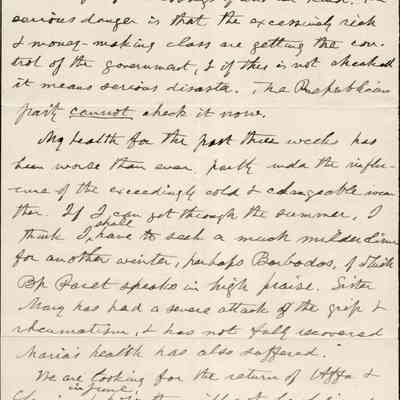 serious danger is that the excessively rich
& money-making class are getting the con-
trol of the government, & if this is not checked
it means serious disaster. The Republican
party cannot check it now.
My health for the past three weeks has
been worse than ever, partly under the influ-
ence of the exceedingly cold & changeable wea
ther. If I can get through the summer, I
think I shall have to seek a much milder clime
for another winter, perhaps Barbados, of which
Bp speaks in high praise. Sister
Mary has had a severe attack of the grip &
rheumatism, & has not fully recovered
Maria's health has also suffered.
We are looking for the return of &
in June